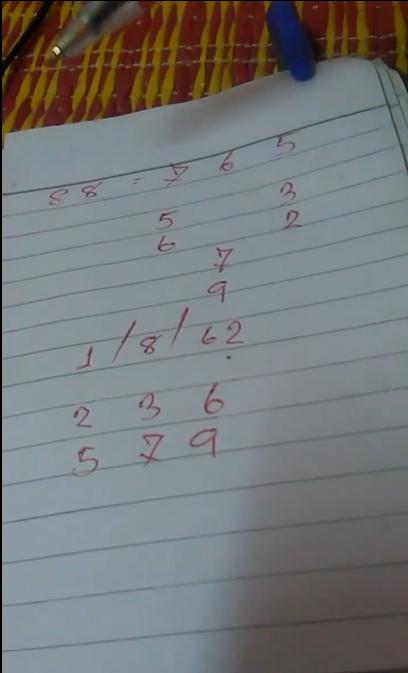 88 = 7 6 5
3
5 2
6
7
9
1/8/62
2 3 6
5 7 9